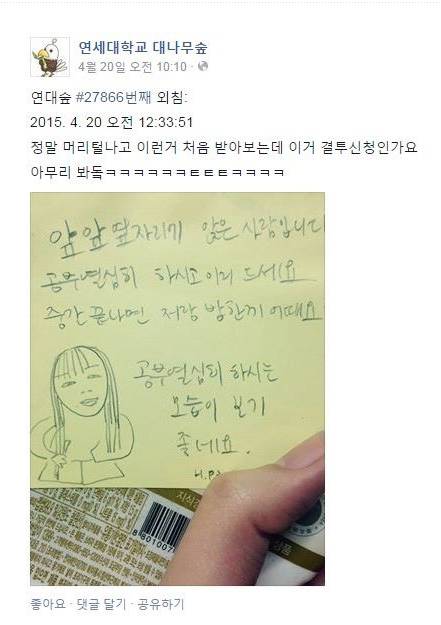 연세대학교 대나무숲
4월 20일 오전 10:10 ·
연대숲 #27866번째 외침:
2015. 4. 20 오전 12:33:51
정말 머리털나고 이런거 처음 받아보는데 이거 결투신청인가요
아무리 봐돜ㅋㅋㅋㅋㅋㅋㅌㅌㅌㅋㅋㅋㅋ
앞앞옆자리기 앉은 사람입니다
공부열심히 하시고 이리 드세요
중간 끝나면 저랑 밥한끼 어때요
공부열심히 하시는
모습이 보기
좋네요.
지식
8801007
상품
좋아요 · 댓글 달기 · 공유하기